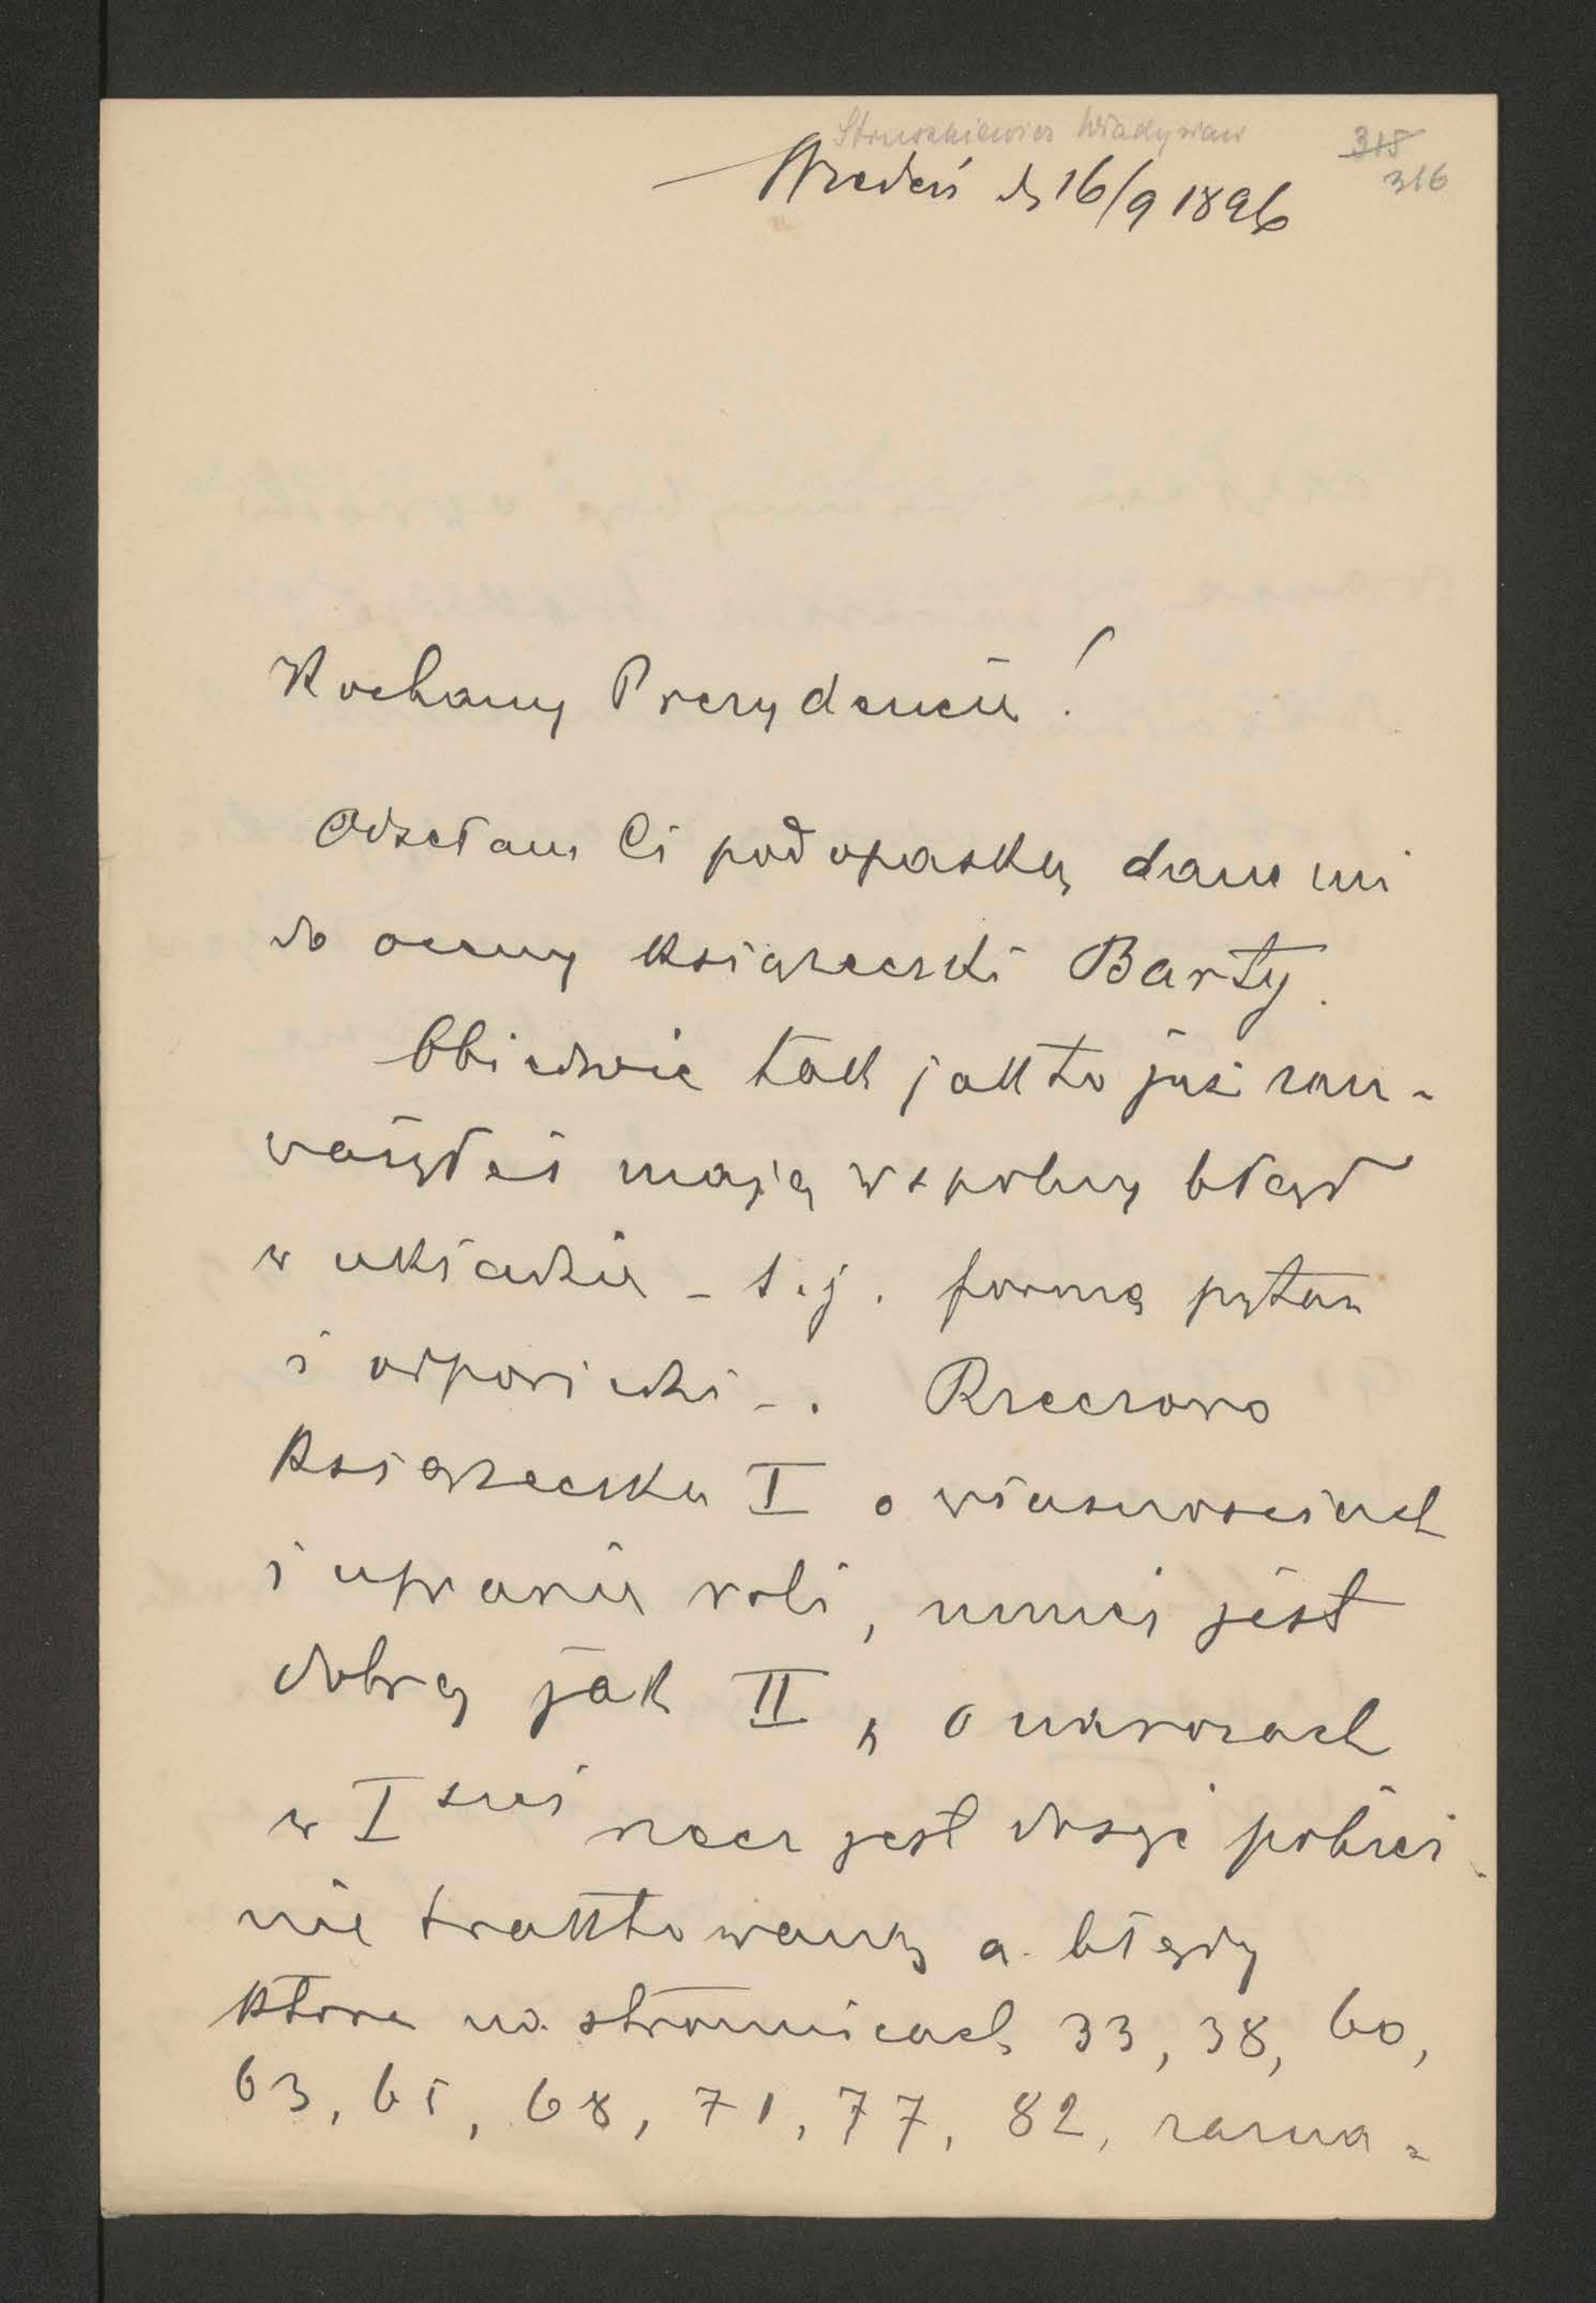 Struszkiewicz Władysław
315
316
Wiedeń d 16/9 1896
Kochany Prezydencie!
Odsełam Ci pod opaską dane mi
do oceny książeczki Barty.
Obiedwie tak jak to już zau-
ważyłeś mają wspolny błąd
w układzie - t.j. formę pytań
i odpowiedzi -. Rzeczowo
książeczka I o własnosciach
i uprawie roli, mniej jest
dobrą jak II, o nawozach
w I szej rzecz jest dosyć pobież-
nie traktowaną a błędy
ktore na stronnicach 33, 38, 60,
63, 65, 68, 71, 77, 82, zazna-